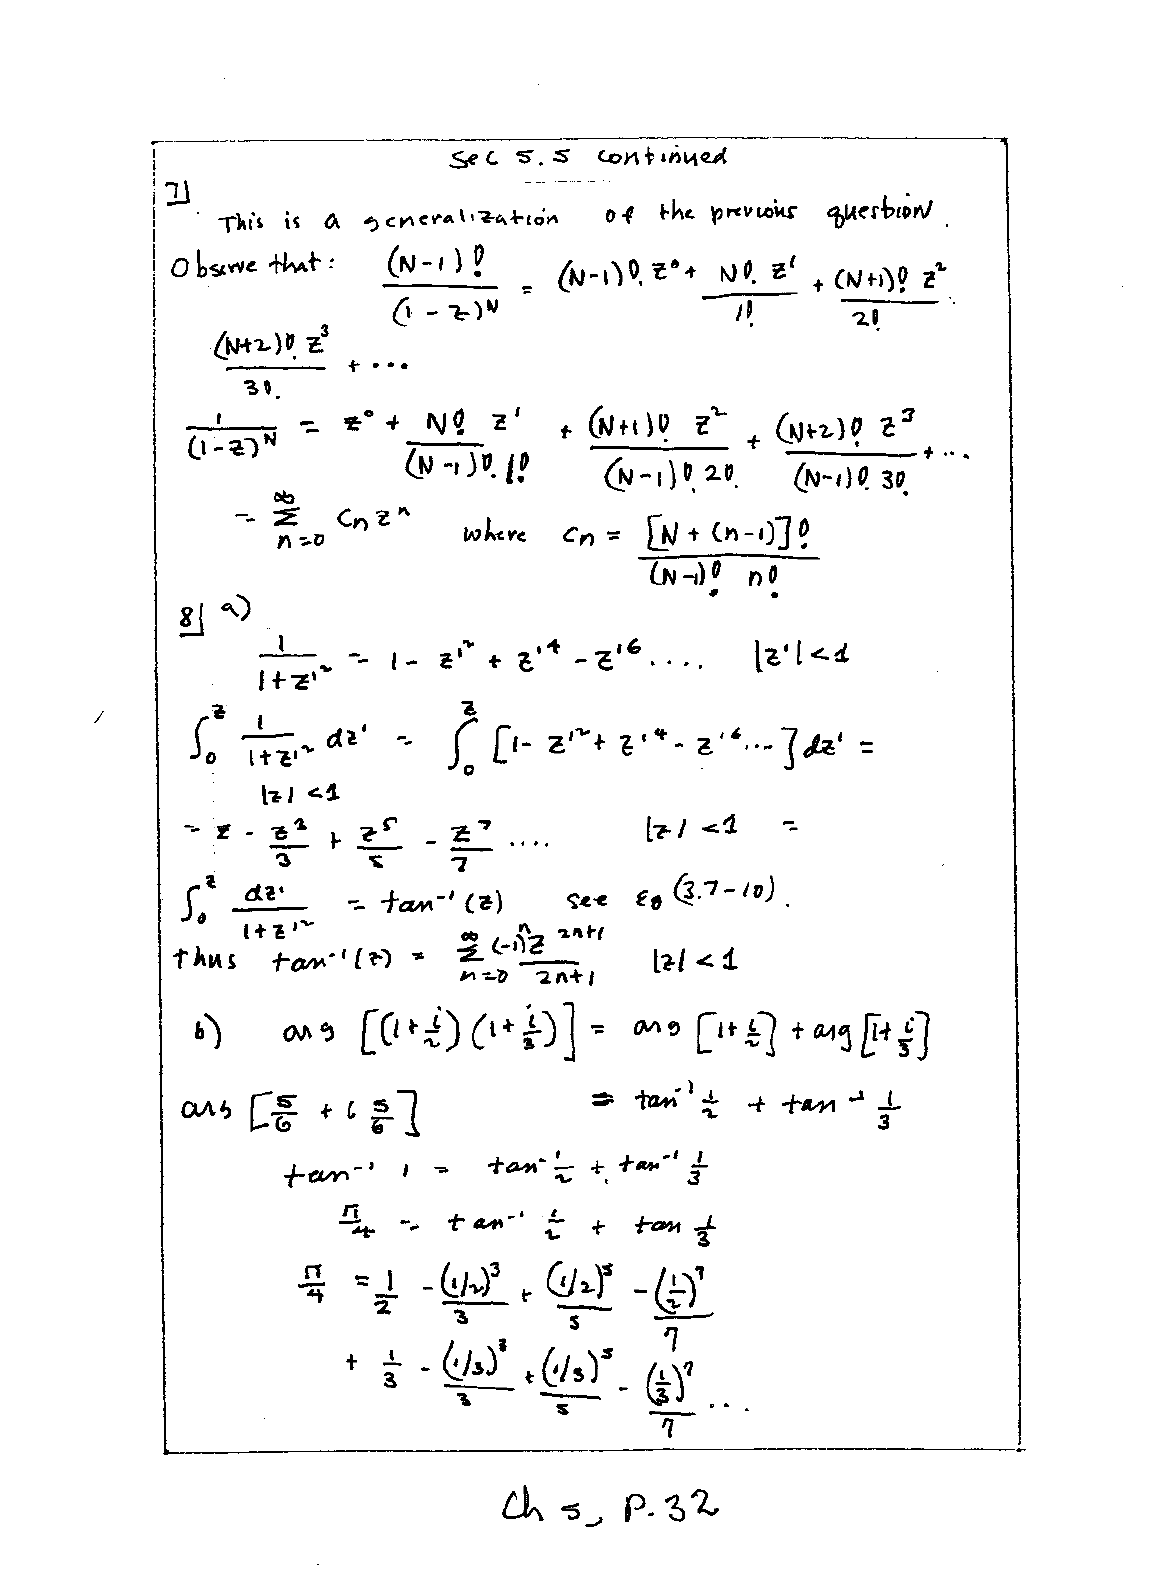 Sec 5.5 continued
7]
This is a generalization of the previous question.
Observe that: (N-1)!/(1-z)^N = (N-1)! z^0 + N! z^1/1! + (N+1)! z^2/2!
(N+2)! z^3/3! + ...
1/(1-z)^N = z^0 + N! z^1/((N-1)! 1!) + (N+1)! z^2/((N-1)! 2!) + (N+2)! z^3/((N-1)! 3!) + ...
= ∑_{n=0}^{∞} c_n z^n where c_n = [N+(n-1)]!/((N-1)! n!)
8] a)
1/(1+z'^2) = 1 - z'^2 + z'^4 - z'^6 .... |z'| < 1
∫_0^z 1/(1+z'^2) dz' = ∫_0^z [1 - z'^2 + z'^4 - z'^6 ...] dz' =
|z| < 1
= z - z^3/3 + z^5/5 - z^7/7 .... |z| < 1 =
∫_0^z dz'/(1+z'^2) = tan^-1(z) see Eq (3.7-10).
thus tan^-1(z) = ∑_{n=0}^{∞} (-1)^n z^{2n+1}/(2n+1) |z| < 1
b) arg [(1+i/2)(1+i/3)] = arg [1+i/2] + arg [1+i/3]
arg [5/6 + i 5/6] = tan^-1 1/2 + tan^-1 1/3
tan^-1 1 = tan^-1 1/2 + tan^-1 1/3
π/4 = tan^-1 1/2 + tan 1/3
π/4 = 1/2 - (1/2)^3/3 + (1/2)^5/5 - (1/2)^7/7
+ 1/3 - (1/3)^3/3 + (1/3)^5/5 - (1/3)^7/7 ...
Ch 5, P.32